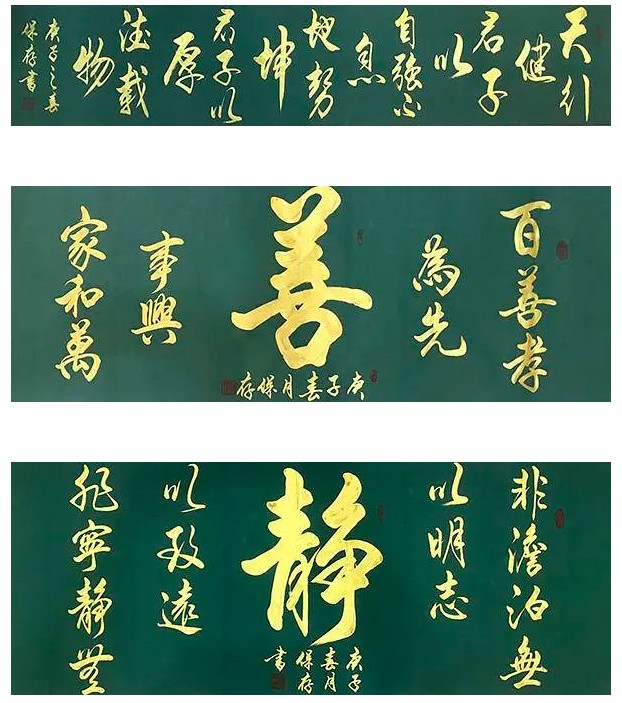 天行
健
君子
以
自强不
息
地勢
坤
君子以
厚
德載
物
庚子之春
保存書
百善孝
為先
善
家和萬
事興
庚子春月保存
非澹泊無
以明志
静
非寧静無
以致遠
庚子
春月
保存
書